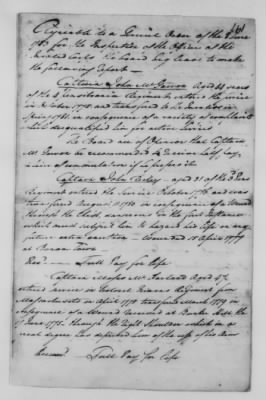 Agreeable to a General Order of the June
1783 for the Inspection of the Officers of the
Invalid Corps The Board beg leave to make
the following Report
Captain John McGowan Aged 44 years
of the Pennsylvania Regiment entered the service
in October 1775 and transferred to the Invalids in
April 1781 in consequence of a variety of complaints
which disqualified him for active Service
The Board are of Opinion that Captain
McGowan be recommended to receive
of commutation
Captain John Riley aged 31 of the 3d
Regiment entered the Service October 1776 and was
transferred August 1780 in consequence of a Wound
through the thick in the first Instance
which must subject him to hazard his Life on any
Wounded 15 April 1777
at Bound Brook
Resd Full Pay for Life
Captain Moses McFarland Aged
entered Service in Colonel Nixons Regiment from
Massachusetts in April 1775 transferred March 1779 in
consequence of a Wound received at Bunker Hill the
17 June 1775 through the right Shoulder which in a
great degree has deprived him of the use of his Arm
Resolved Full Pay for Life